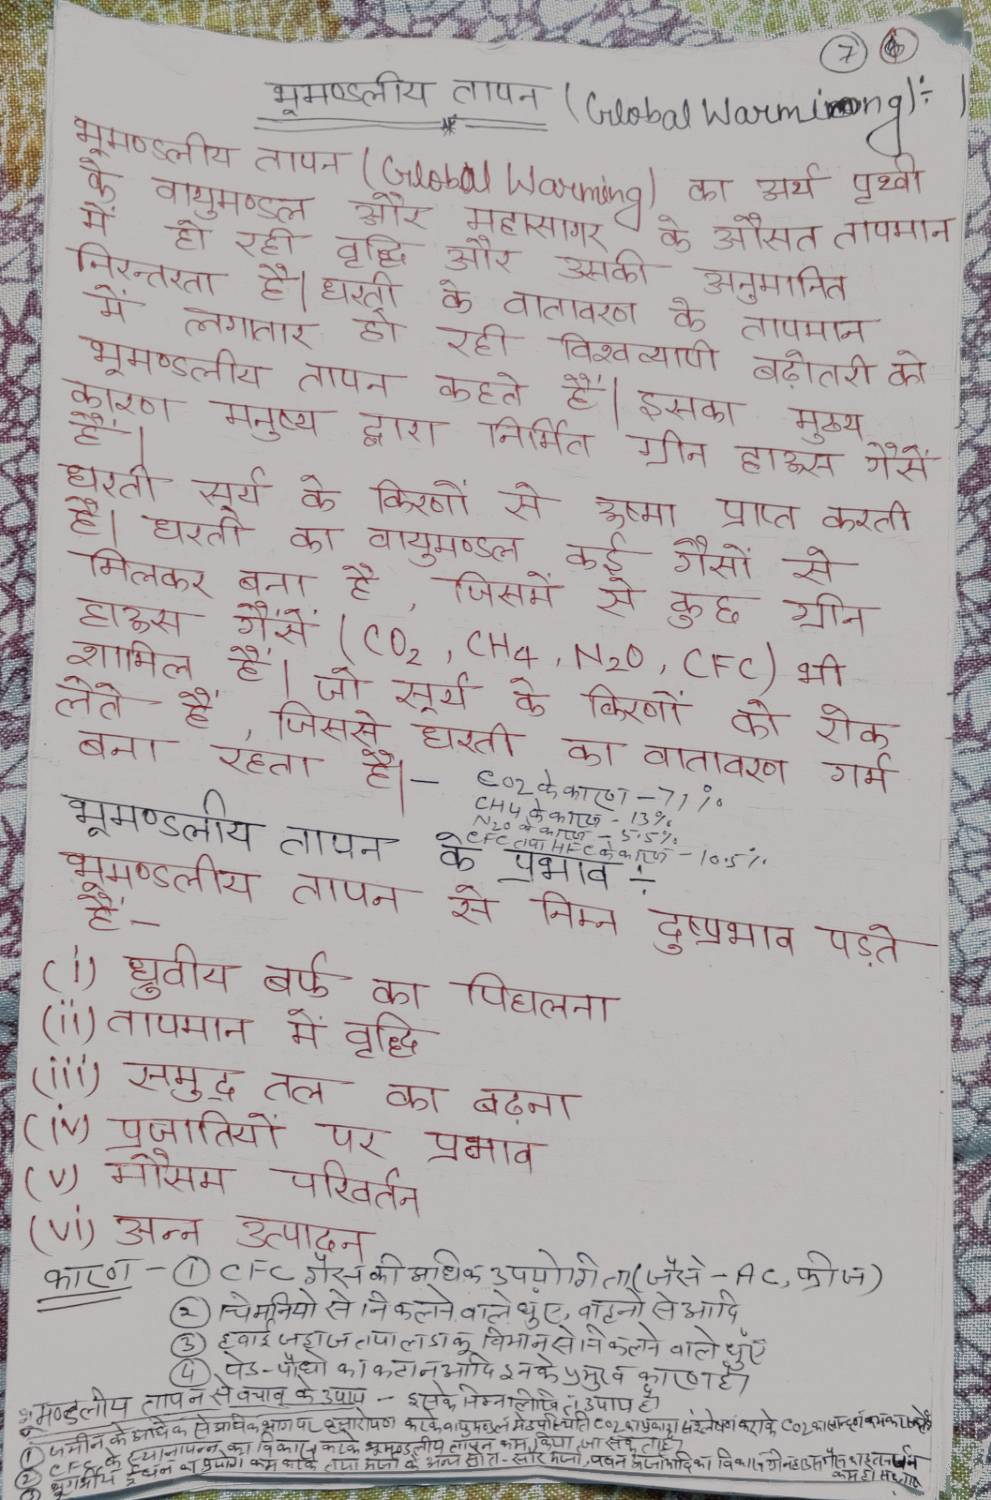 7
भूमण्डलीय तापन (Global Warming)÷
भूमण्डलीय तापन (Global Warming) का अर्थ पृथ्वी
के वायुमण्डल और महासागर के औसत तापमान
में हो रही वृद्धि और उसकी अनुमानित
निरन्तरता है। धरती के वातावरण के तापमान
में लगातार हो रही विश्वव्यापी बढ़ोतरी को
भूमण्डलीय तापन कहते हैं। इसका मुख्य
कारण मनुष्य द्वारा निर्मित ग्रीन हाऊस गैसें
हैं।
धरती सूर्य के किरणों से ऊष्मा प्राप्त करती
है। धरती का वायुमण्डल कई गैसों से
मिलकर बना है, जिसमें से कुछ ग्रीन
हाऊस गैंसें (CO2, CH4, N2O, CFC) भी
शामिल हैं। जो सूर्य के किरणों को रोक
लेते हैं, जिससे धरती का वातावरण गर्म
बना रहता है।-
CO2 के कारण - 71%
CH4 के कारण - 13%
N2O के कारण - 5.5%
CFC तथा HFC के कारण - 10.5%
भूमण्डलीय तापन के प्रभाव÷
भूमण्डलीय तापन से निम्न दुष्प्रभाव पड़ते
हैं-
(i) ध्रुवीय बर्फ का पिघलना
(ii) तापमान में वृद्धि
(iii) समुद्र तल का बढ़ना
(iv) प्रजातियों पर प्रभाव
(v) मौसम परिवर्तन
(vi) अन्न उत्पादन
कारण - ① CFC गैस की अधिक उपयोगिता (जैसे - AC, फ्रीज)
② चिमनियो से निकलने वाले धुए, वाहनो से आदि
③ हवाई जहाज तथा लडाकू विमान से निकलने वाले धुएँ
④ पेड-पौधो का कटान आदि इनके प्रमुख कारण है।
भूमण्डलीय तापन से बचाव के उपाय - इसके निम्नलिखित उपाय है।
① जमीन के अधिक से अधिक भाग पर वृक्षारोपण करके वायुमण्डल में उपस्थिति CO2 का प्रकाश संश्लेषण कराके CO2
② CFC के स्थानापन्न का विकास करके भूमण्डलीय तापन कम किया जा सकता है।
③ भूगर्भीय ईंधन का प्रयोग कम करके तथा ऊर्जा के अन्य स्रोत - सौर ऊर्जा, पवन ऊर्जा आदि का विकास